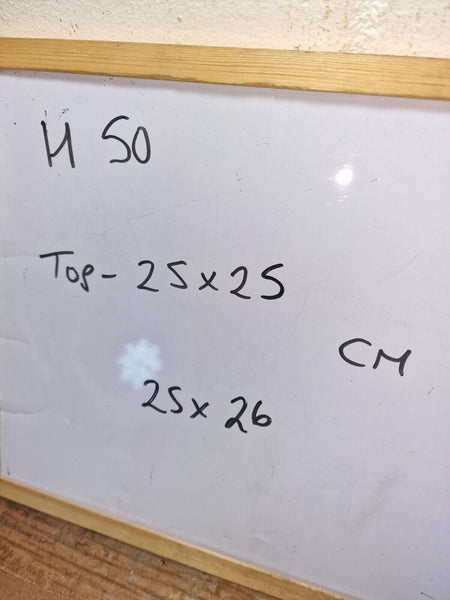 H 50
Top - 25 x 25
CM
25 x 26